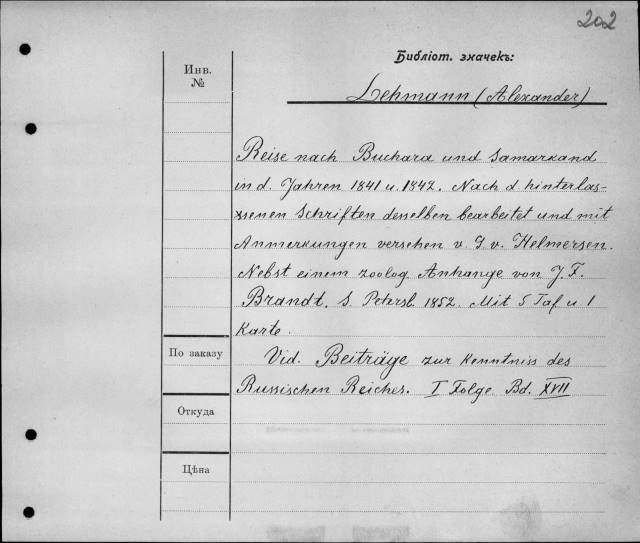 202
Библіот. значекъ:
Инв.
№
Lehmann (Alexander)
Reise nach Buchara und Samarkand
in d. Jahren 1841 u. 1842. Nach d. hinterlas-
senen Schriften desselben bearbeitet und mit
Anmerkungen versehen v. G. v. Helmersen.
Nebst einem zoolog. Anhange von J. F.
Brandt. S. Petersb. 1852. Mit 5 Taf u 1
Karte.
По заказу
Vid. Beiträge zur Kenntniss des
Russischen Reiches. I Folge Bd. XVII
Откуда
Цѣна